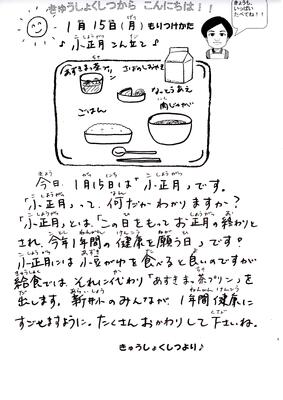 きゅうしょくしつから こんにちは！！
1月15日(月)もりつけかた
きょうも、いっぱいたべてね！！
♪小正月こん立て♪
あずきまっ茶プリン
ごはん
肉じゃが
今日、1月15日は「小正月」です。
「小正月」って、何だかわかりますか？
「小正月」とは、「この日をもってお正月の終わりと
され、今年1年間の健康を願う日」です？
小正月には小豆がゆを食べると良いのですが
給食では、それに代わり「あずきまっ茶プリン」を
出します。新井小のみんなが、1年間健康に
すごせますように。たくさんおかわりして下さいね。
きゅうしょくしつより♪